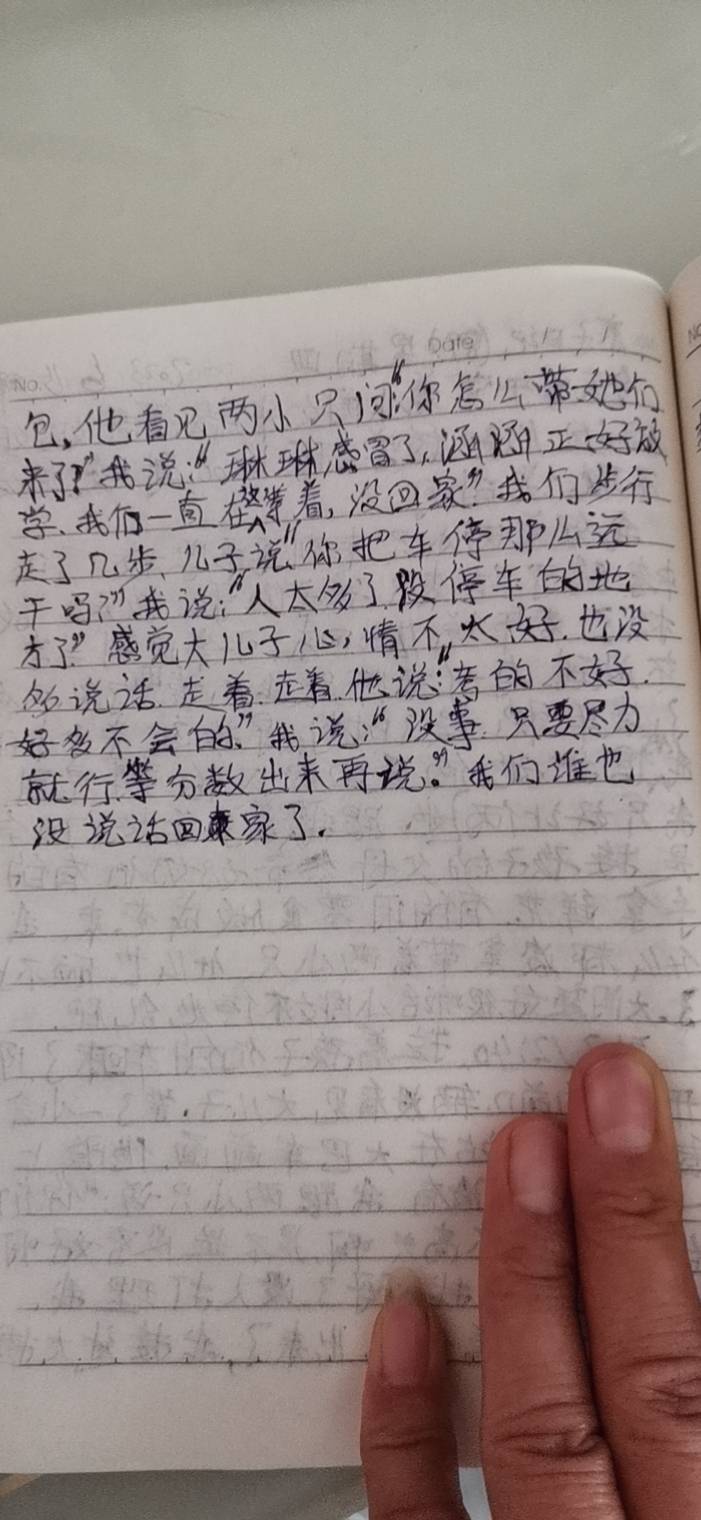 Date
包,他看见两小只问:“你怎么带她们
来了?”我说:“琳琳感冒了,涵涵正好放
学、我们一直在等着,没回家.”我们步行
走了几步、儿子说“你把车停那么远
干吗?”我说:“人太多了没停车的地
方了”感觉大儿子心情不太好.也没
多说话.走着.走着.他说:“考的不好.
好多不会的.”我说:“没事.只要尽力
就行.等分数出来再说。”我们谁也
没说话回家了.